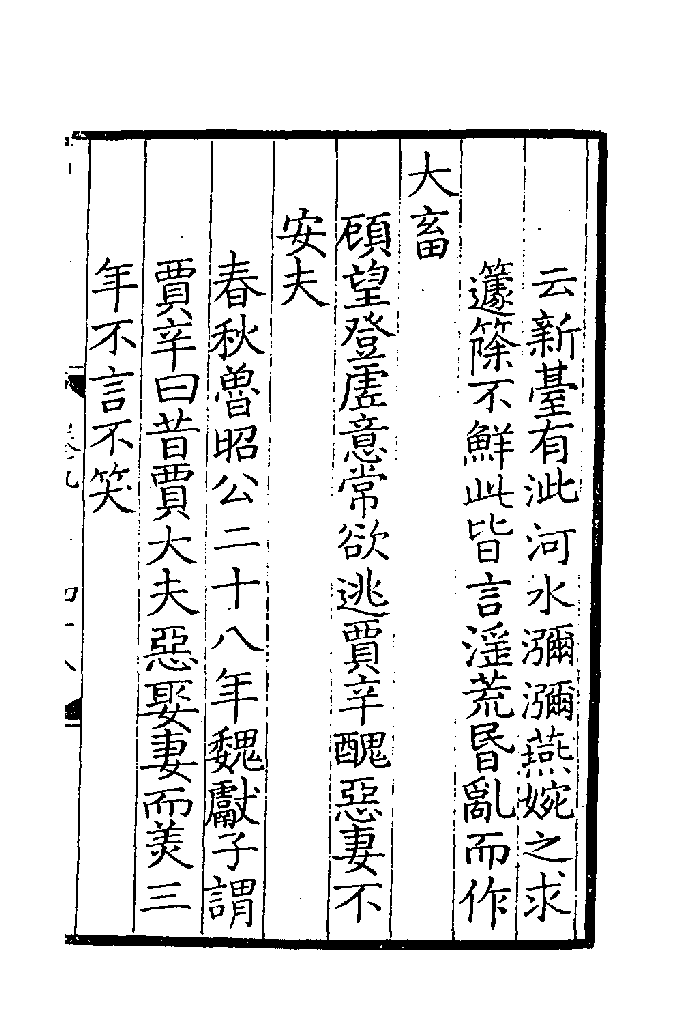 云新臺有泚河水瀰瀰燕婉之求
籧篨不鮮此皆言淫荒昬亂而作
大畜
顧望登虛意常欲逃賈辛醜惡妻不
安夫
春秋魯昭公二十八年魏獻子謂
賈辛曰昔賈大夫惡娶妻而美三
年不言不笑